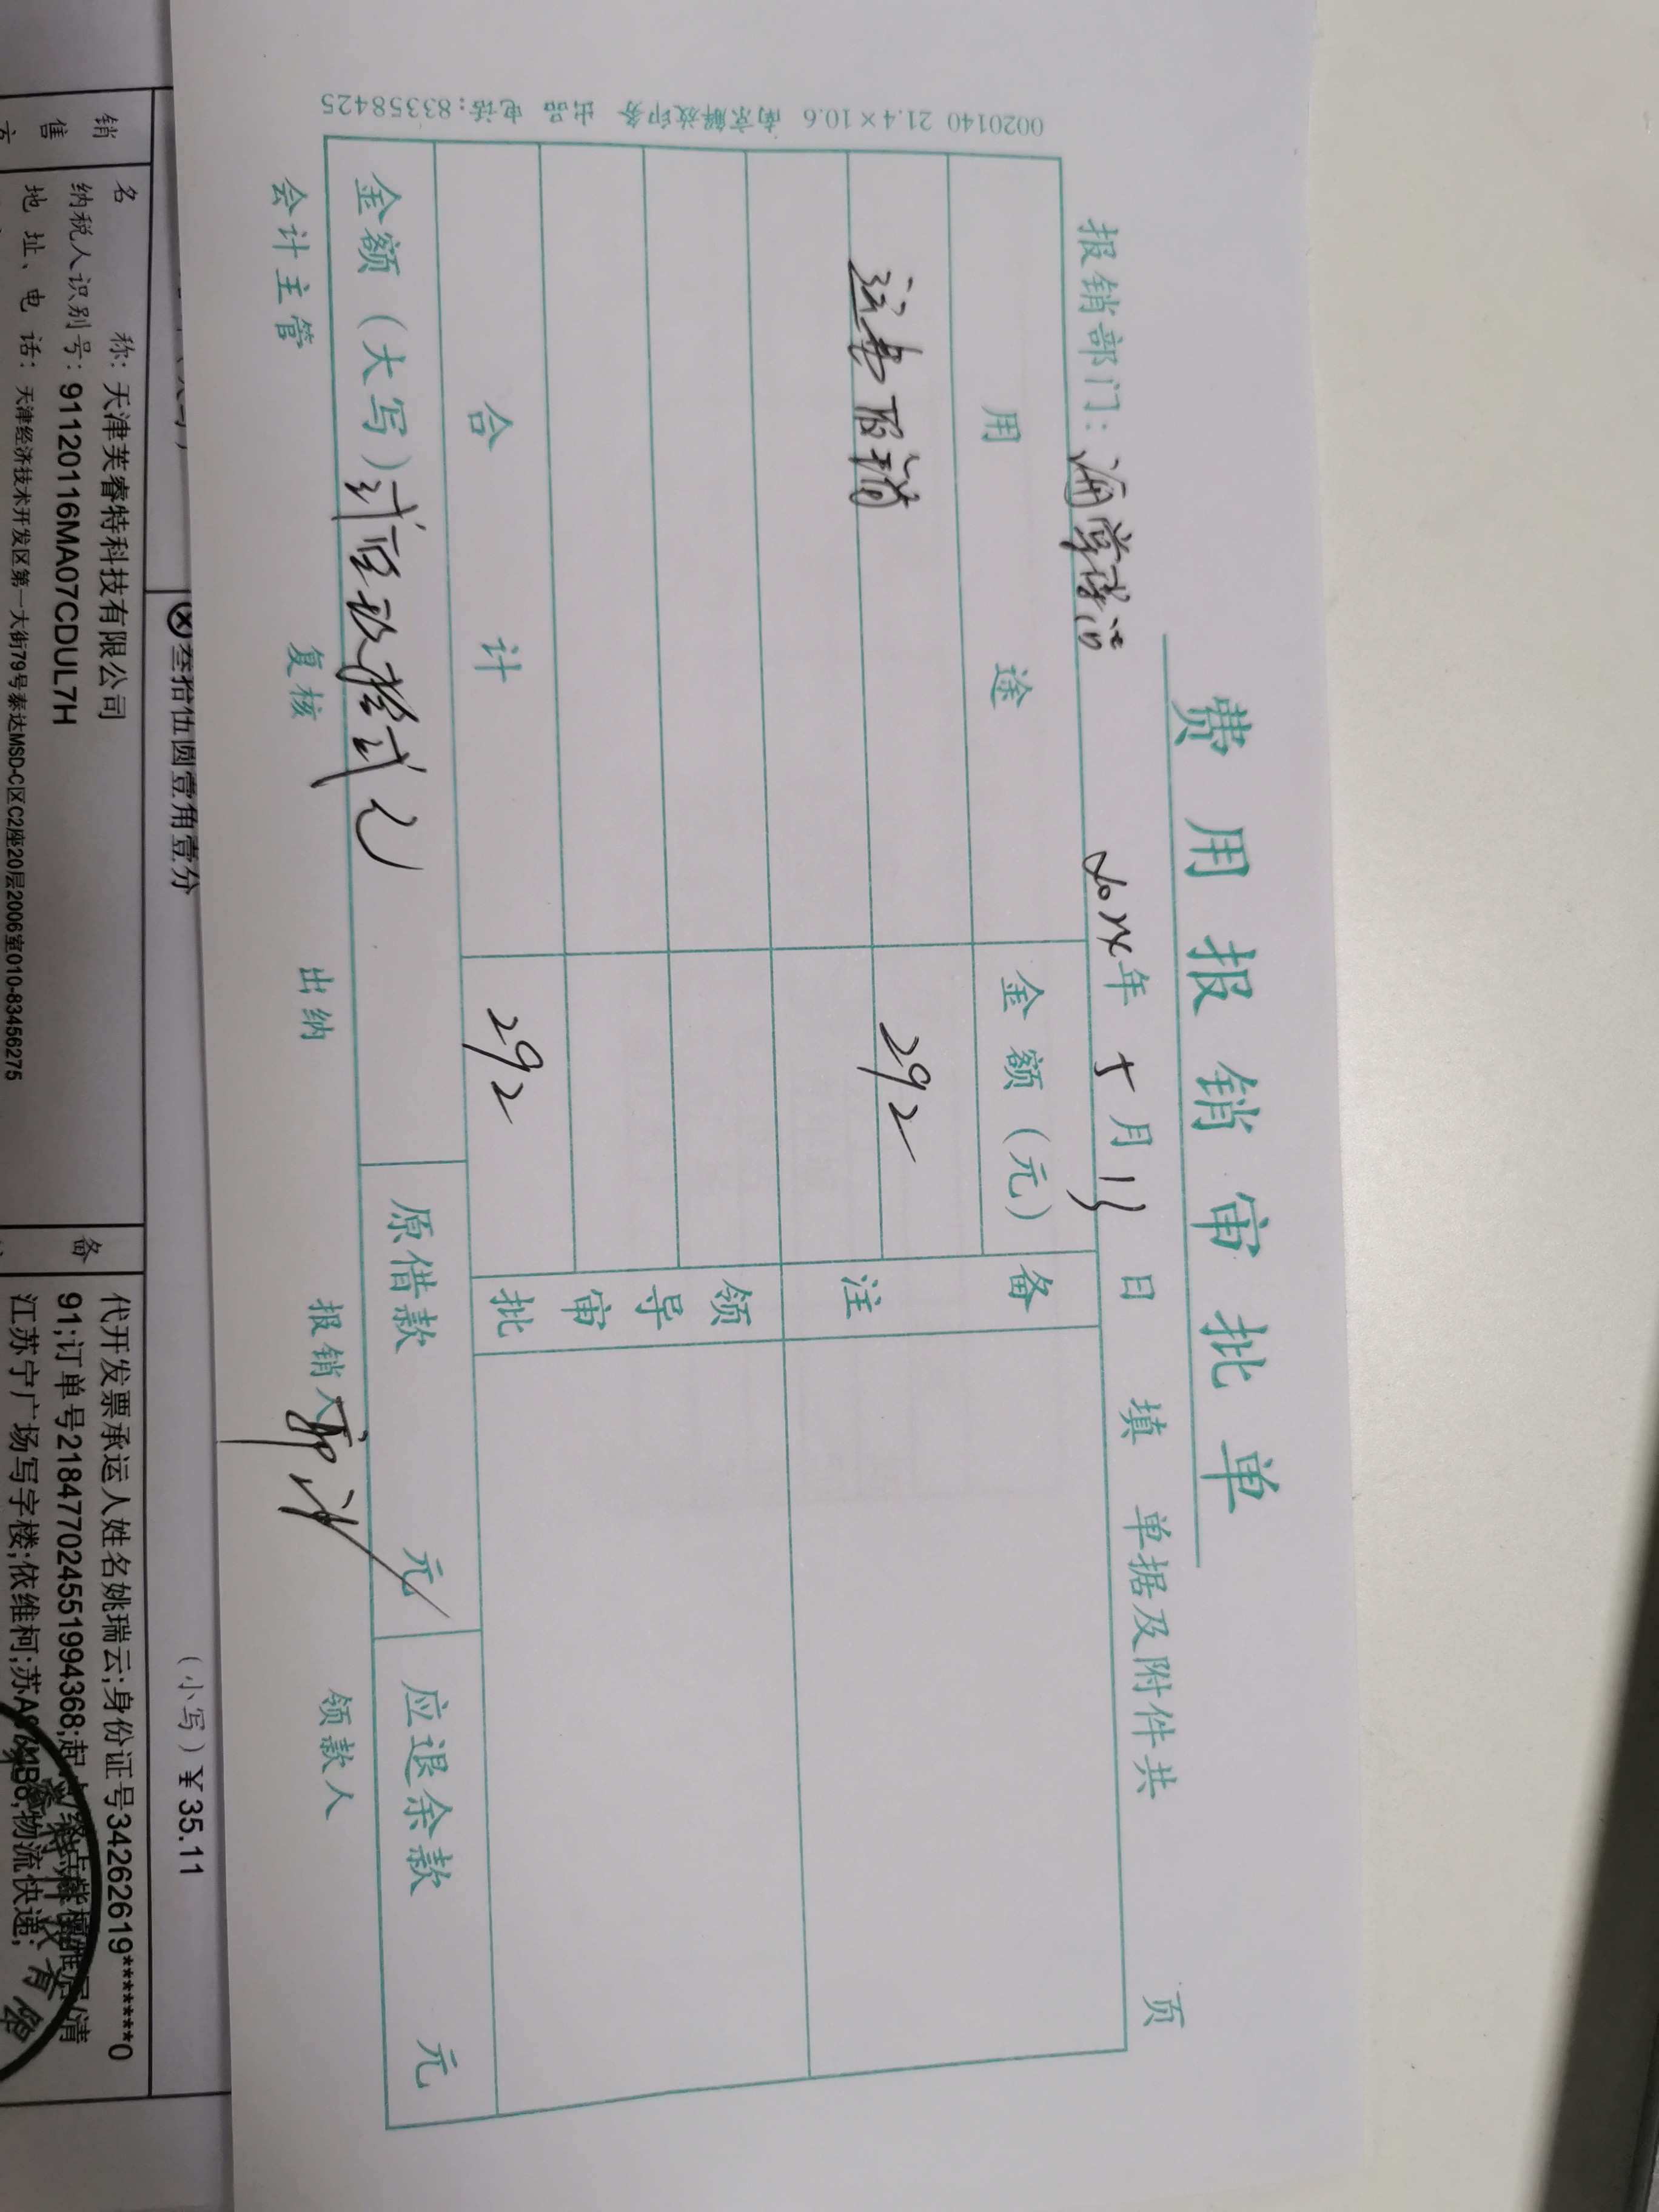 费用报销审批单
报销部门：
年 月 日 填 单据及附件共 页
用途 金额（元） 备注
292
领导审批
合计 292
金额（大写）贰百玖拾贰元 原借款 元 应退余款 元
会计主管 复核 出纳 报销人 领款人
0020140 21.4×10.6 南京解放印务 出品 电话：83358425
ⓧ叁拾伍圆壹角壹分 （小写）¥35.11
销售方
名 称：天津芙睿特科技有限公司
纳税人识别号：91120116MA07CDUL7H
地 址、电 话：天津经济技术开发区第一大街79号泰达MSD-C区C2座20层2006室010-83456275
备
代开发票承运人姓名姚瑞云;身份证号34262619*******0
91;订单号2184770245519943​68;起 终点紫檀雅居/清
江苏宁广场写字楼;依维柯;苏A 物流快递;